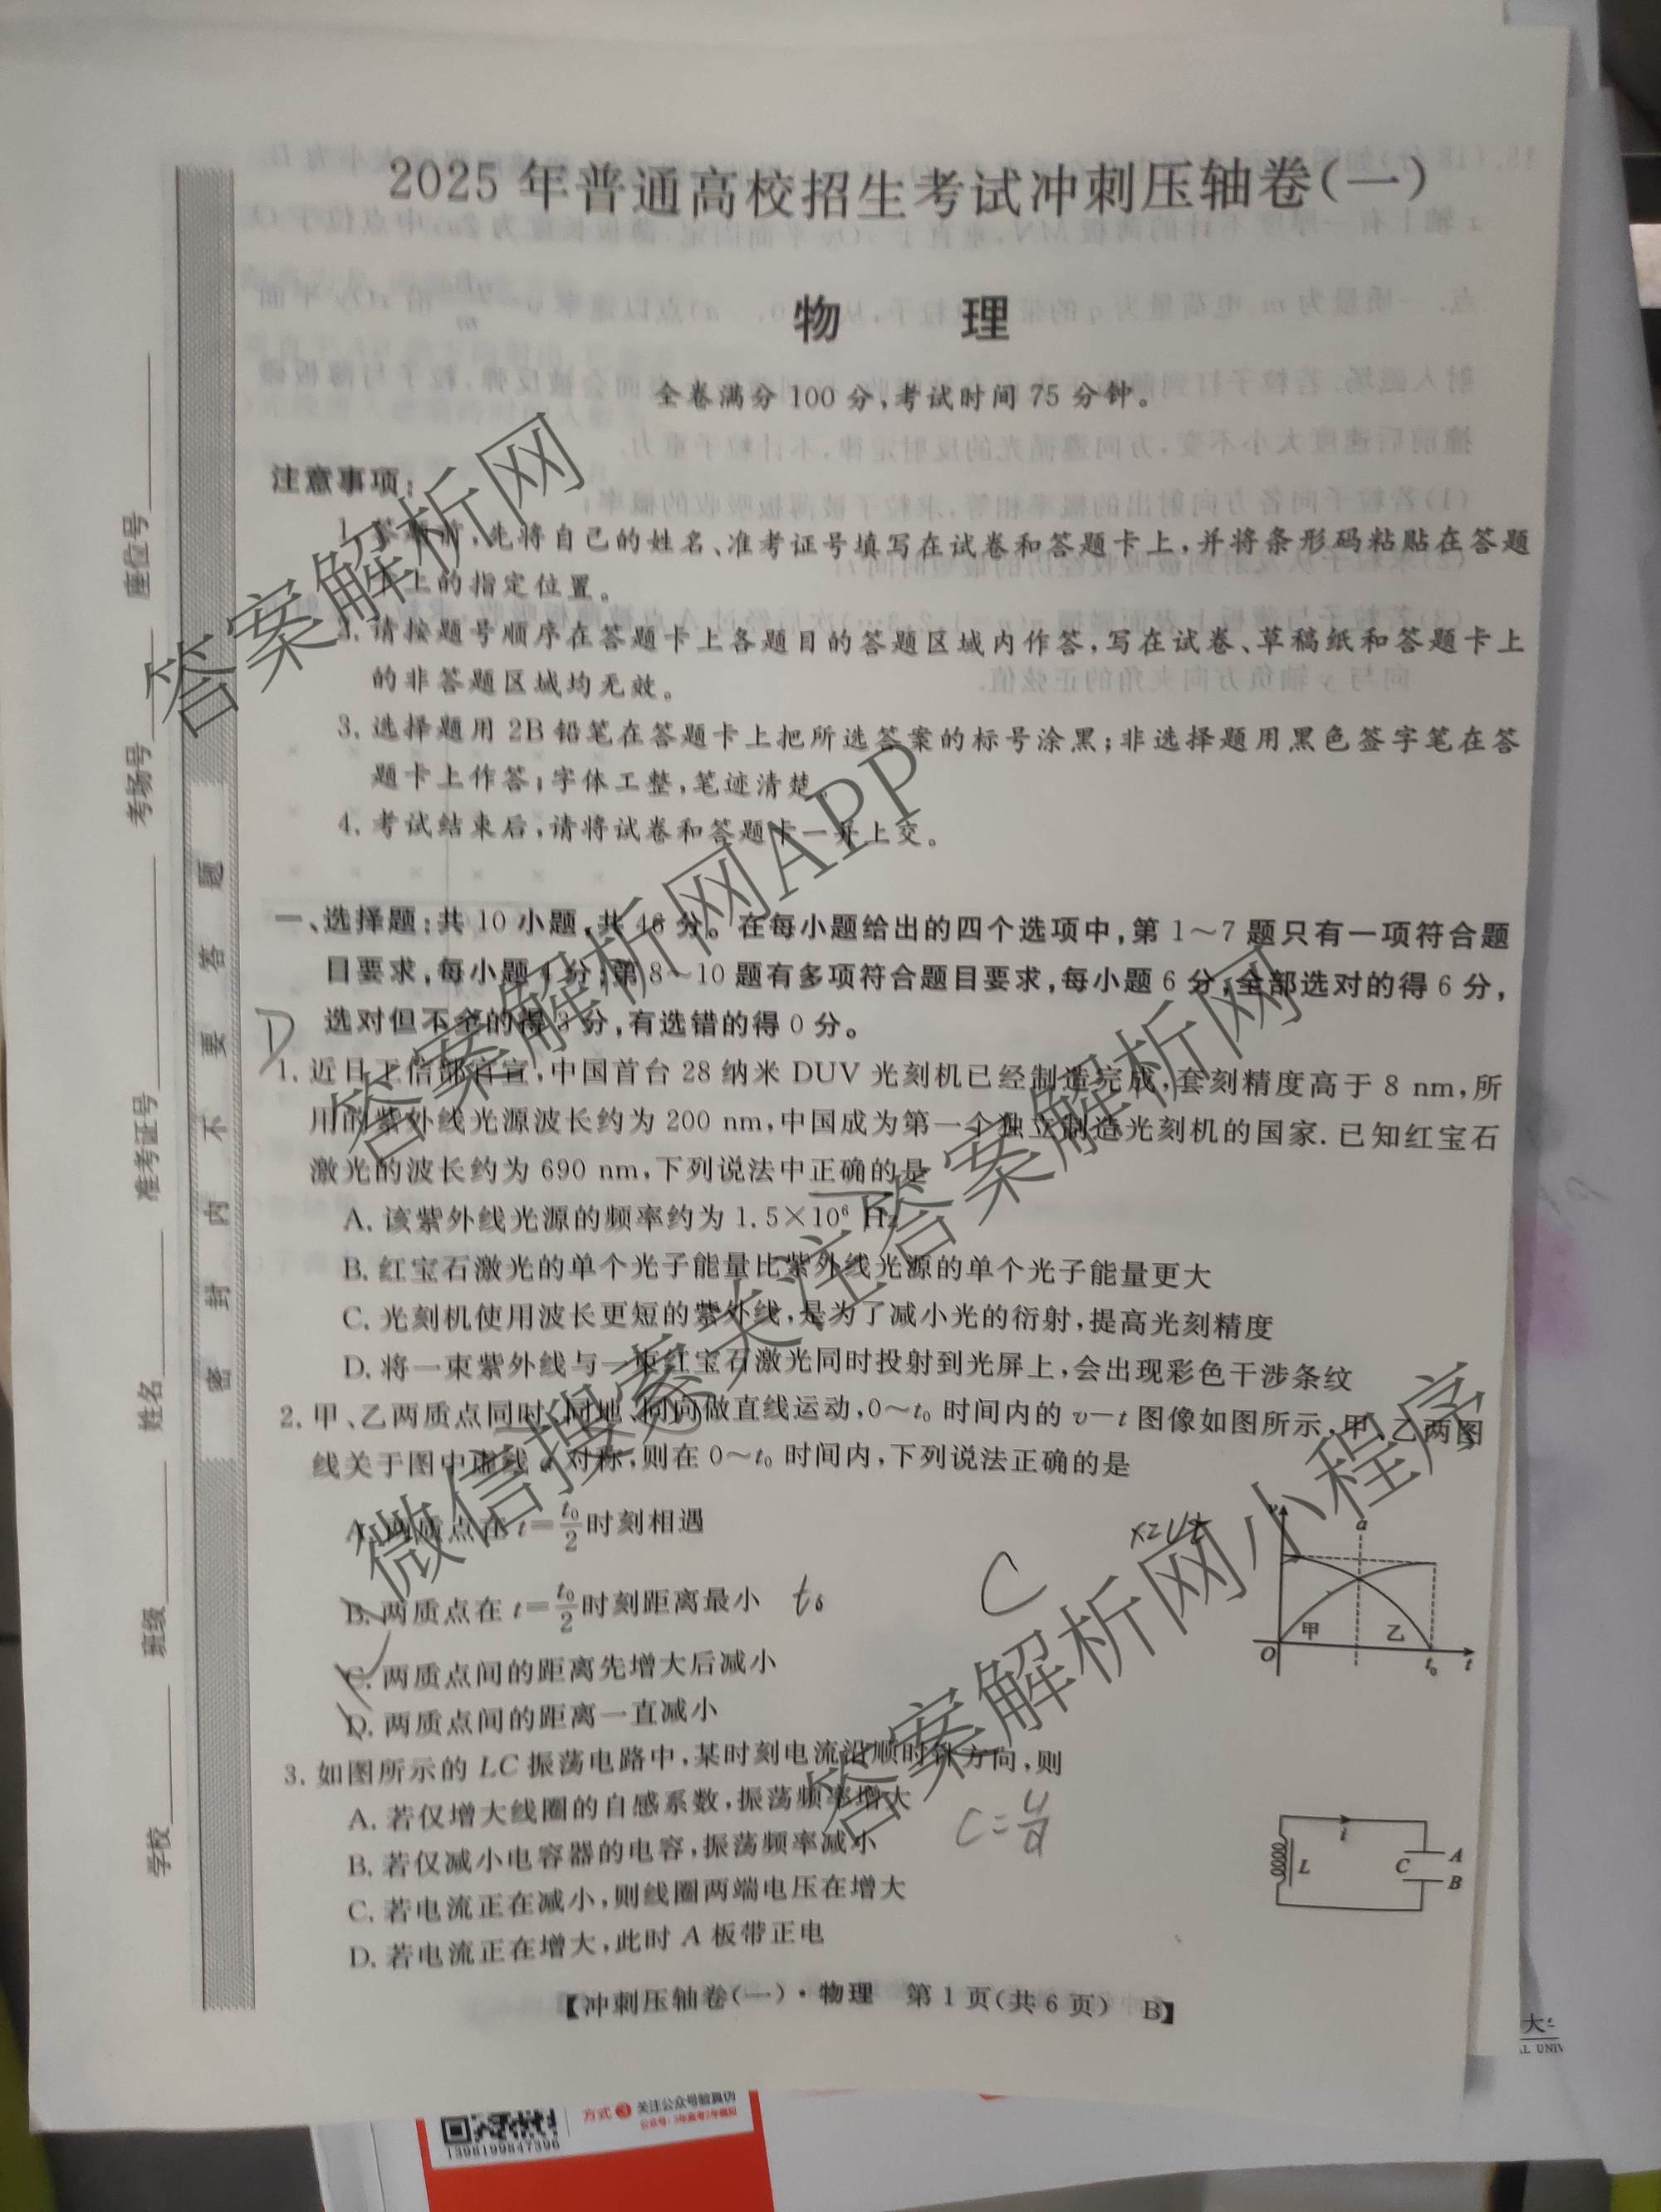 2025年普通高校招生考试冲刺压轴卷(一)
物 理
全卷满分100分,考试时间75分钟。
注意事项:
1.答题前,先将自己的姓名、准考证号填写在试卷和答题卡上,并将条形码粘贴在答题
卡上的指定位置。
2.请按题号顺序在答题卡上各题目的答题区域内作答,写在试卷、草稿纸和答题卡上
的非答题区域均无效。
3.选择题用2B铅笔在答题卡上把所选答案的标号涂黑;非选择题用黑色签字笔在答
题卡上作答;字体工整,笔迹清楚。
4.考试结束后,请将试卷和答题卡一并上交。
一、选择题:共10小题,共46分。在每小题给出的四个选项中,第1~7题只有一项符合题
目要求,每小题4分;第8~10题有多项符合题目要求,每小题6分,全部选对的得6分,
选对但不全的得3分,有选错的得0分。
D
1.近日工信部官宣,中国首台28纳米DUV光刻机已经制造完成,套刻精度高于8 nm,所
用的紫外线光源波长约为200 nm,中国成为第一个独立制造光刻机的国家.已知红宝石
激光的波长约为690 nm,下列说法中正确的是
A.该紫外线光源的频率约为1.5×10⁶ Hz
B.红宝石激光的单个光子能量比紫外线光源的单个光子能量更大
C.光刻机使用波长更短的紫外线,是为了减小光的衍射,提高光刻精度
D.将一束紫外线与一束红宝石激光同时投射到光屏上,会出现彩色干涉条纹
2.甲、乙两质点同时、同地、同向做直线运动,0~t₀时间内的v-t图像如图所示,甲、乙两图
线关于图中虚线a对称,则在0~t₀时间内,下列说法正确的是
A.两质点在t=t₀/2时刻相遇
B.两质点在t=t₀/2时刻距离最小 t₀
C
x=vt
C.两质点间的距离先增大后减小
D.两质点间的距离一直减小
v
a
甲
乙
O
t₀
t
3.如图所示的LC振荡电路中,某时刻电流沿顺时针方向,则
A.若仅增大线圈的自感系数,振荡频率增大
B.若仅减小电容器的电容,振荡频率减小
C.若电流正在减小,则线圈两端电压在增大
D.若电流正在增大,此时A板带正电
i
L
C
A
B
【冲刺压轴卷(一)·物理 第1页(共6页) B】
座位号
考场号
准考证号
姓名
班级
学校
密 封 线 内 不 要 答 题
答案解析网
答案解析网APP
微信搜索关注答案解析网
答案解析网小程序
方式3 关注公众号验真伪
1398199847396